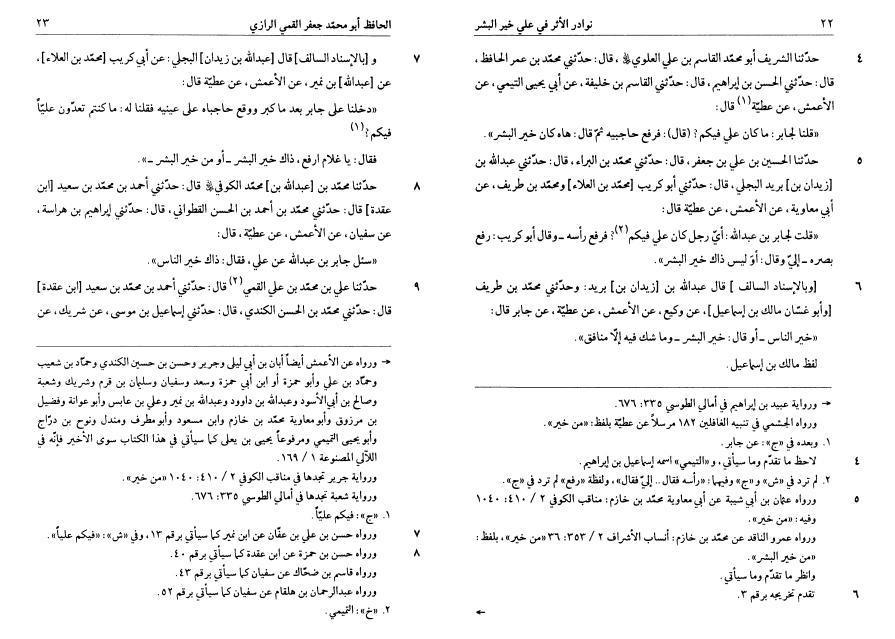 ٢٢ نوادر الأثر في علي خير البشر
٤ حدّثنا الشريف أبو محمّد القاسم بن علي العلوي، قال: حدّثني محمّد بن عمر الحافظ،
قال: حدّثني الحسن بن إبراهيم، قال: حدّثني القاسم بن خليفة، عن أبي يحيى التيمي، عن
الأعمش، عن عطيّة(١) قال:
«قلنا لجابر: ما كان علي فيكم؟ (قال): فرفع حاجبيه ثمّ قال: هاه كان خير البشر».
٥ حدّثنا الحسين بن علي بن جعفر، قال: حدّثني محمّد بن البراء، قال: حدّثني عبدالله بن
[زيدان بن] بريد البجلي، قال: حدّثني أبو كريب [محمّد بن العلاء] ومحمّد بن طريف، عن
أبي معاوية، عن الأعمش، عن عطيّة قال:
«قلت لجابر بن عبدالله: أيّ رجل كان علي فيكم(٢)؟ فرفع رأسه ـ وقال أبو كريب: رفع
بصره ـ إليّ وقال: أوَ ليس ذاك خير البشر».
٦ [وبالإسناد السالف] قال عبدالله بن [زيدان بن] بريد: وحدّثني محمّد بن طريف
[وأبو غسّان مالك بن إسماعيل]، عن وكيع، عن الأعمش، عن عطيّة، عن جابر قال:
«خير الناس ـ أو قال: خير البشر ـ وما شك فيه إلّا منافق».
لفظ مالك بن إسماعيل.
→ ورواية عبيد بن إبراهيم في أمالي الطوسي ٣٣٥: ٦٧٦.
ورواه الجشمي في تنبيه الغافلين ١٨٢ مرسلاً عن عطيّة بلفظ: «من خير».
١. وبعده في «ج»: عن جابر.
٤ لاحظ ما تقدّم وما سيأتي، و«التيمي» اسمه إسماعيل بن إبراهيم.
٢. لم ترد في «ش» و«ج» وفيهما: «رأسه فقال.. إليّ فقال»، ولفظة «رفع» لم ترد في «ج».
٥ ورواه عثمان بن أبي شيبة عن أبي معاوية محمّد بن خازم: مناقب الكوفي ٢ / ٤١٠: ١٠٤٠
وفيه: «من خير».
ورواه عمرو الناقد عن محمّد بن خازم: أنساب الأشراف ٢ / ٣٥٣: ٣٦ «من خير»، بلفظ:
«من خير البشر».
وانظر ما تقدّم وما سيأتي.
٦ تقدم تخريجه برقم ٣.
←
الحافظ أبو محمّد جعفر القمي الرازي ٢٣
٧ و [بالإسناد السالف] قال [عبدالله بن زيدان] البجلي: عن أبي كريب [محمّد بن العلاء]،
عن [عبدالله] بن نمير، عن الأعمش، عن عطيّة قال:
«دخلنا على جابر بعد ما كبر ووقع حاجباه على عينيه فقلنا له: ما كنتم تعدّون عليّاً
فيكم؟(١)
فقال: يا غلام ارفع، ذاك خير البشر ـ أو من خير البشر ـ».
٨ حدّثنا محمّد بن [عبدالله بن] محمّد الكوفي قال: حدّثني أحمد بن محمّد بن سعيد [ابن
عقدة] قال: حدّثني محمّد بن أحمد بن الحسن القطواني، قال: حدّثني إبراهيم بن هراسة،
عن سفيان، عن الأعمش، عن عطيّة، قال:
«سئل جابر بن عبدالله عن علي، فقال: ذاك خير الناس».
٩ حدّثنا علي بن محمّد بن علي القمي(٢) قال: حدّثني أحمد بن محمّد بن سعيد [ابن عقدة]
قال: حدّثني محمّد بن الحسن الكندي، قال: حدّثني إسماعيل بن موسى، عن شريك، عن
→ ورواه عن الأعمش أيضاً أبان بن أبي ليلى وجرير وحسن بن حسين الكندي وحمّاد بن شعيب
وحمّاد بن علي وأبو حمزة أو ابن أبي حمزة وسعد وسفيان وسليمان بن قرم وشريك وشعبة
وصالح بن أبي الأسود وعبدالله بن داوود وعبدالله بن نمير وعلي بن عابس وأبو عوانة وفضيل
بن مرزوق وأبو معاوية محمّد بن خازم وابن مسعود وأبو مطرف ومندل ونوح بن درّاج
وأبو يحيى التميمي ومرفوعاً يحيى بن يعلى كما سيأتي في هذا الكتاب سوى الأخير فإنّه في
اللآلي المصنوعة ١ / ١٦٩.
ورواية جرير تجدها في مناقب الكوفي ٢ / ٤١٠: ١٠٤٠ «من خير».
ورواية شعبة تجدها في أمالي الطوسي ٣٣٥: ٦٧٦.
١. «ج»: فيكم عليّاً.
٧ ورواه حسن بن علي بن عفّان عن ابن نمير كما سيأتي برقم ١٣، وفي «ش»: «فيكم علياً».
٨ ورواه حسن بن حمزة عن ابن عقدة كما سيأتي برقم ٤٠.
ورواه قاسم بن ضحّاك عن سفيان كما سيأتي برقم ٤٣.
ورواه عبدالرحمان بن هلقام عن سفيان كما سيأتي برقم ٥٢.
٢. «خ»: التميمي.